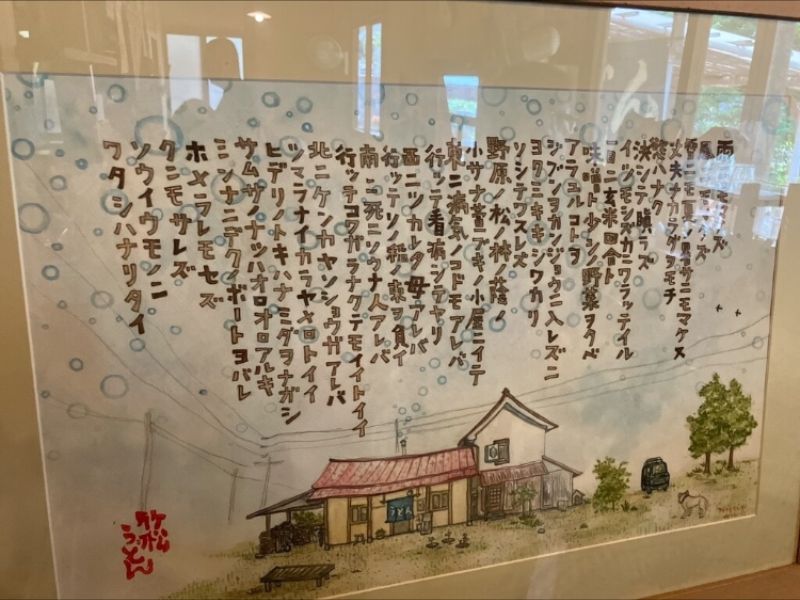 雨ニモマケズ
風ニモマケズ
雪ニモ夏ノ暑サニモマケヌ
丈夫ナカラダヲモチ
慾ハナク
決シテ瞋ラズ
イツモシズカニワラッテイル
一日ニ玄米四合ト
味噌ト少シノ野菜ヲタベ
アラユルコトヲ
ジブンヲカンジョウニ入レズニ
ヨクミキキシワカリ
ソシテワスレズ
野原ノ松ノ林ノ蔭ノ
小サナ萱ブキノ小屋ニイテ
東ニ病気ノコドモアレバ
行ッテ看病シテヤリ
西ニツカレタ母アレバ
行ッテソノ稲ノ束ヲ負イ
南ニ死ニソウナ人アレバ
行ッテコワガラナクテモイイトイイ
北ニケンカヤソショウガアレバ
ツマラナイカラヤメロトイイ
ヒデリノトキハナミダヲナガシ
サムサノナツハオロオロアルキ
ミンナニデクノボートヨバレ
ホメラレモセズ
クニモサレズ
ソウイウモノニ
ワタシハナリタイ
うどん
竹松
うどん